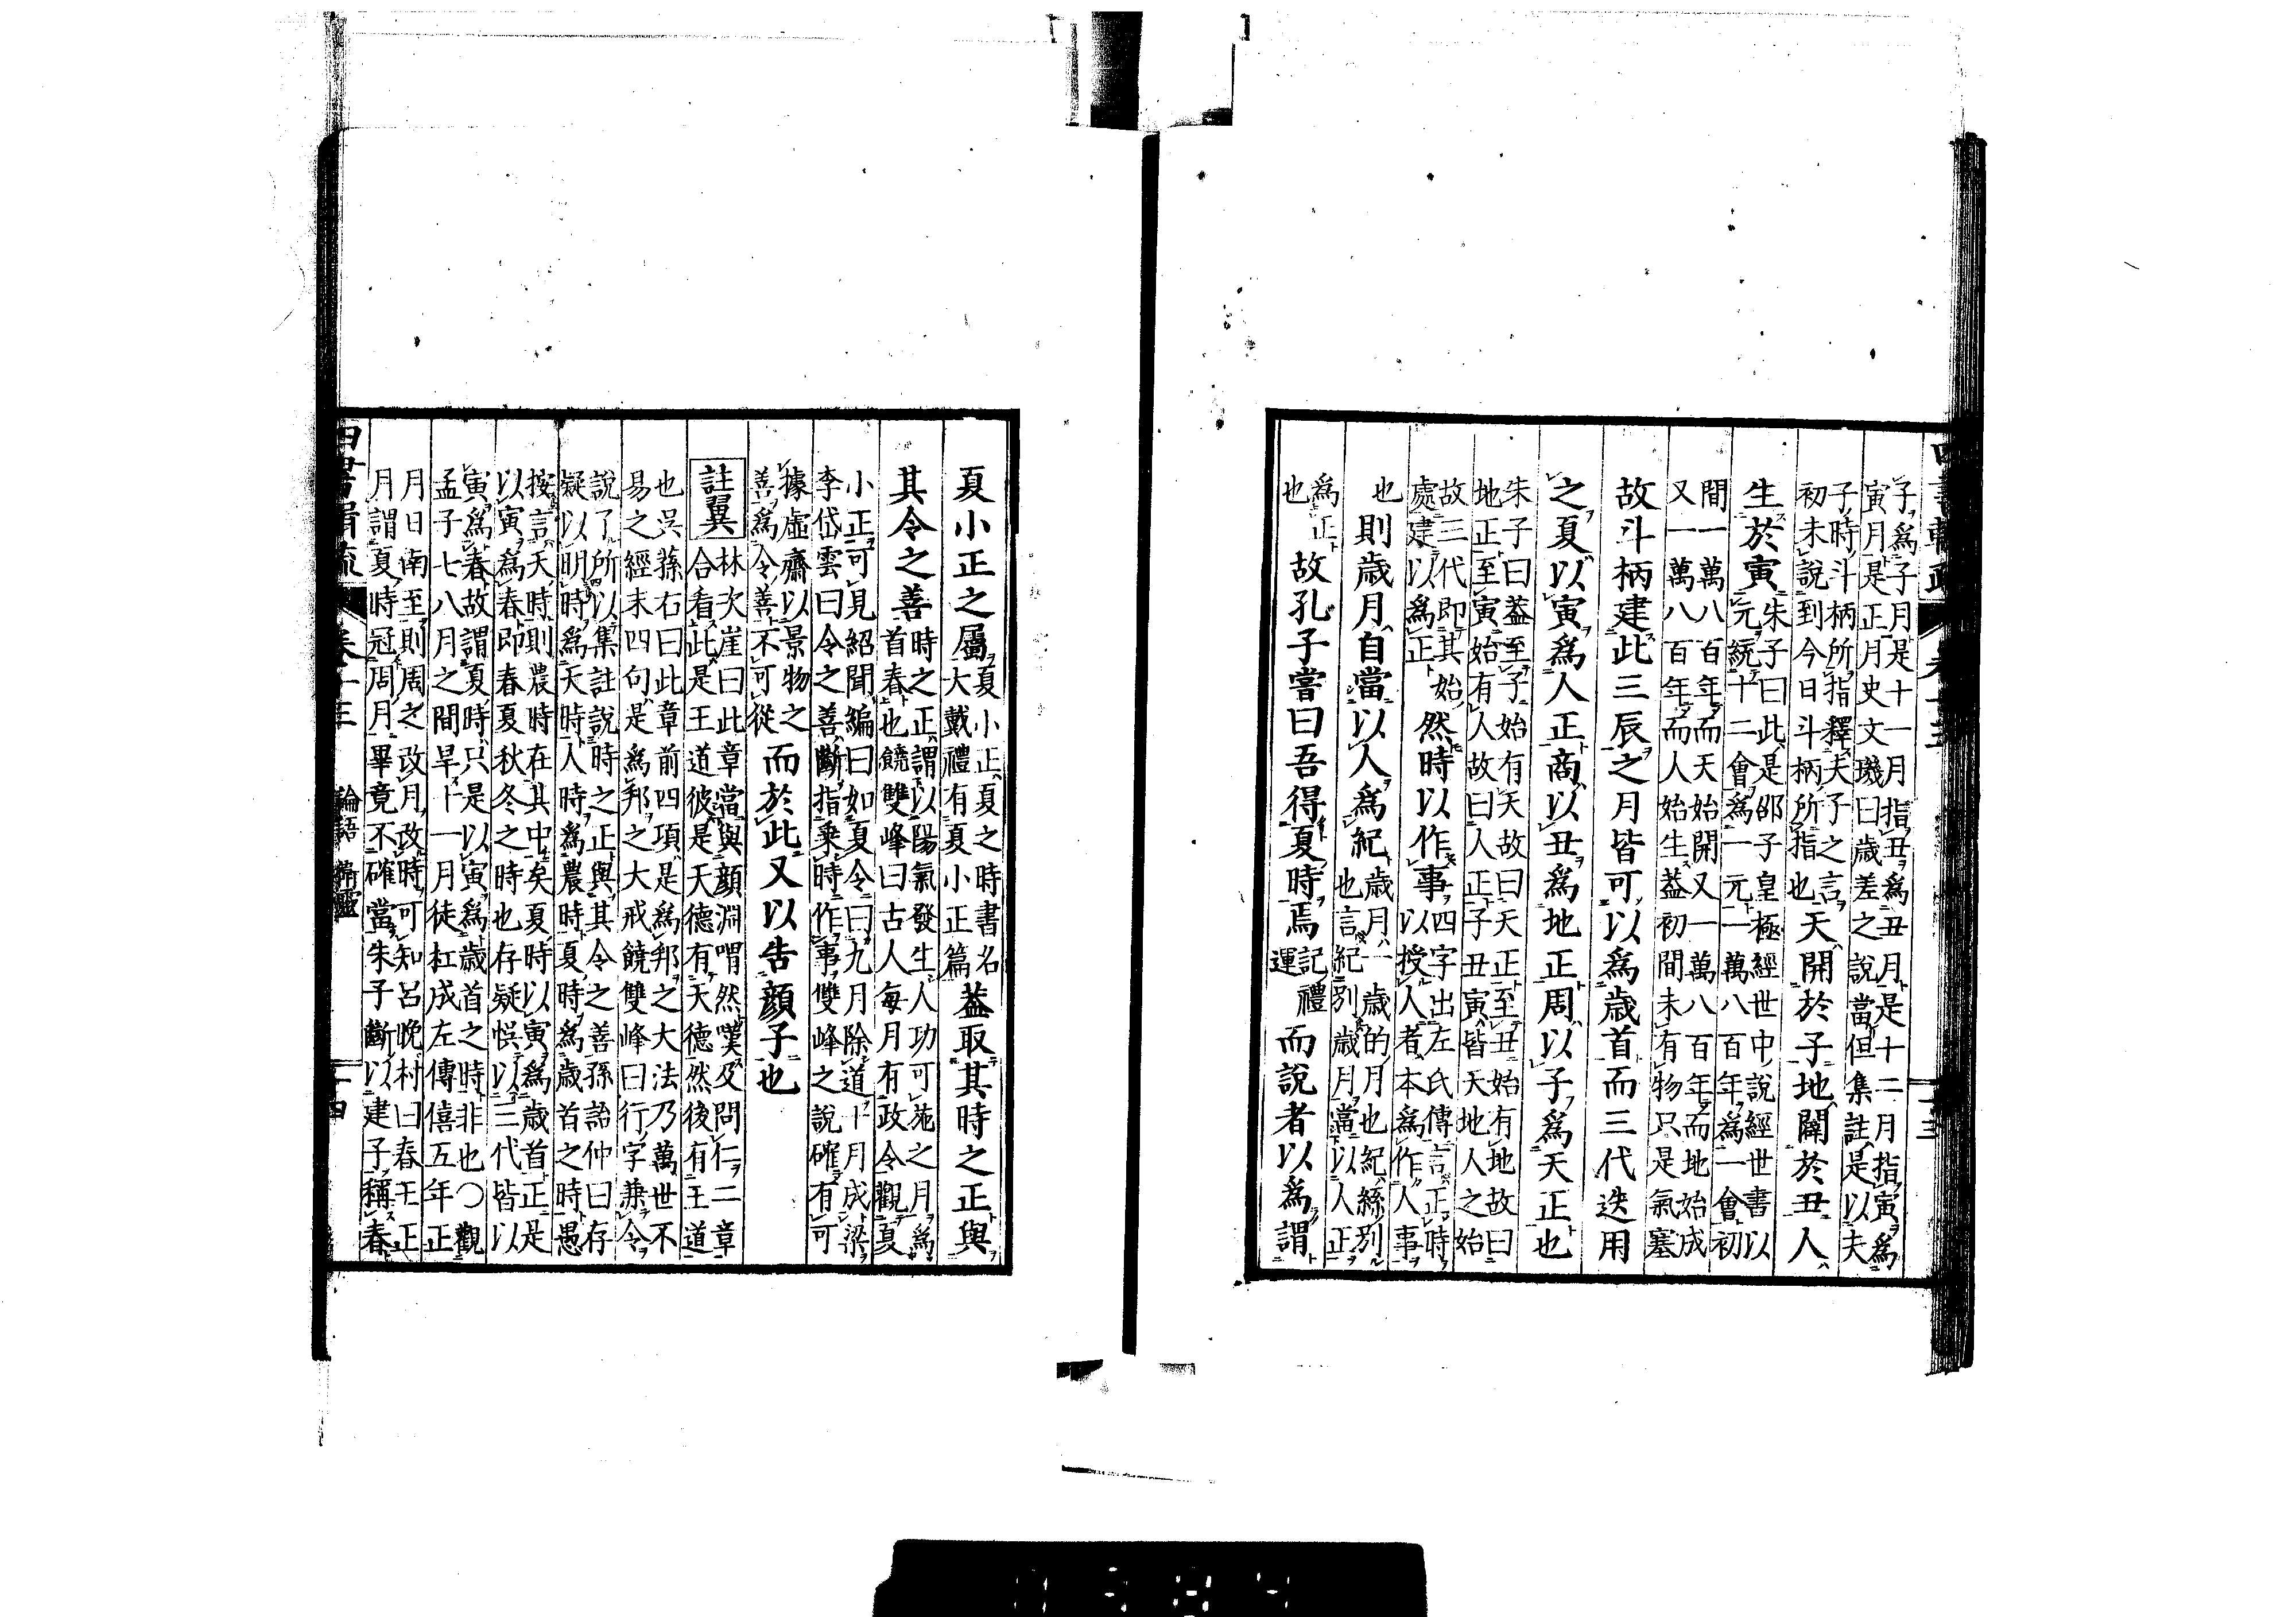 子爲子月是十一月指丑爲丑月是十二月指寅爲
寅月是正月史文璣曰歲差之說當但集註是以夫
子時斗柄所指釋夫子之言天開於子地闢於丑人
初未說到今日斗柄所指也
生於寅朱子曰此是邵子皇極經世中說經世書以
元統十二會爲一元一萬八百年爲一會初
間一萬八百年而天始開又一萬八百年而地始成
又一萬八百年而人始生葢初間未有物只是氣塞
故斗柄建此三辰之月皆可以爲歲首而三代迭用
之夏以寅爲人正商以丑爲地正周以子爲天正也
朱子曰葢至子始有天故曰天正至丑始有地故曰
地正至寅始有人故曰人正子丑寅皆天地人之始
故三代即其始
處建以爲正然時以作事四字出左氏傳言正時
以授人者本爲作人事
也則歲月自當以人爲紀歲月一歲的月也紀絲別
也言紀別歲月當以人正
爲正
也故孔子嘗曰吾得夏時焉記禮
運而說者以爲謂
夏小正之屬夏小正夏之時書名
大戴禮有夏小正篇葢取其時之正與
其令之善時之正謂以陽氣發生人功可施之月爲
首春也饒雙峰曰古人每月有政令觀夏
小正可見紹聞編曰如夏令曰九月除道十月成梁
李岱雲曰令之善斷指乘時作事雙峰之說確有可
據虛齋以景物之
善爲令善不可從而於此又以告顏子也
註翼林次崖曰此章當與顏淵喟然嘆及問仁二章
合看此是王道彼是天德有天德然後有王道
也吳蓀右曰此章前四項是爲邦之大法乃萬世不
易之經末四句是爲邦之大戒饒雙峰曰行字兼令
說了所以集註說時之正與其令之善孫詒仲曰存
疑以明時爲天時人時爲農時夏時爲歲首之時愚
按言天時則農時在其中矣夏時以寅爲歲首正是
以寅爲春即春夏秋冬之時也存疑悞以三代皆以
寅爲春故謂夏時只是以寅爲歲首之時非也〇觀
孟子七八月之間旱十一月徒杠成左傳僖五年正
月日南至則周之改月改時可知呂晚村曰春王正
月謂夏時冠周月畢竟不確當朱子斷以建子稱春
卷十三 論語 衛靈